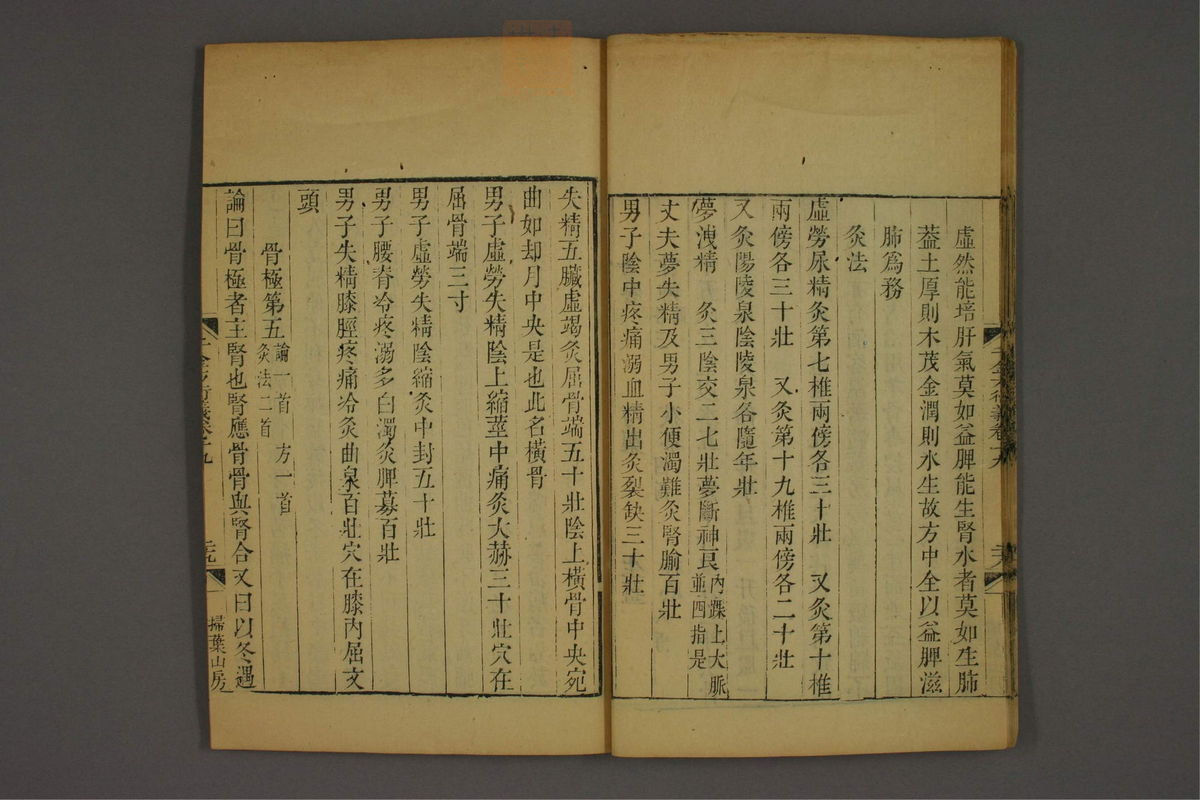 虛然能培肝氣莫如益脾能生腎水者莫如生肺
葢土厚則木茂金潤則水生故方中全以益脾滋
肺為務
灸法
虛勞尿精灸第七椎兩傍各三十壯 又灸第十椎
兩傍各三十壯 又灸第十九椎兩傍各二十壯
又灸陽陵泉陰陵泉各隨年壯
夢洩精 灸三陰交二七壯夢斷神良內踝上大脈並四指是
丈夫夢失精及男子小便濁難灸腎腧百壯
男子陰中疼痛溺血精出灸裂缺三十壯
失精五臟虛竭灸屈骨端五十壯陰上橫骨中央宛
曲如却月中央是也此名橫骨
男子虛勞失精陰上縮莖中痛灸大赫三十壯穴在
屈骨端三寸
男子虛勞失精陰縮灸中封五十壯
男子腰脊冷疼溺多白濁灸脾募百壯
男子失精膝脛疼痛冷灸曲泉百壯穴在膝內屈文
頭
骨極第五論一首 方一首 灸法二首
論曰骨極者主腎也腎應骨骨與腎合又曰以冬遇
掃葉山房